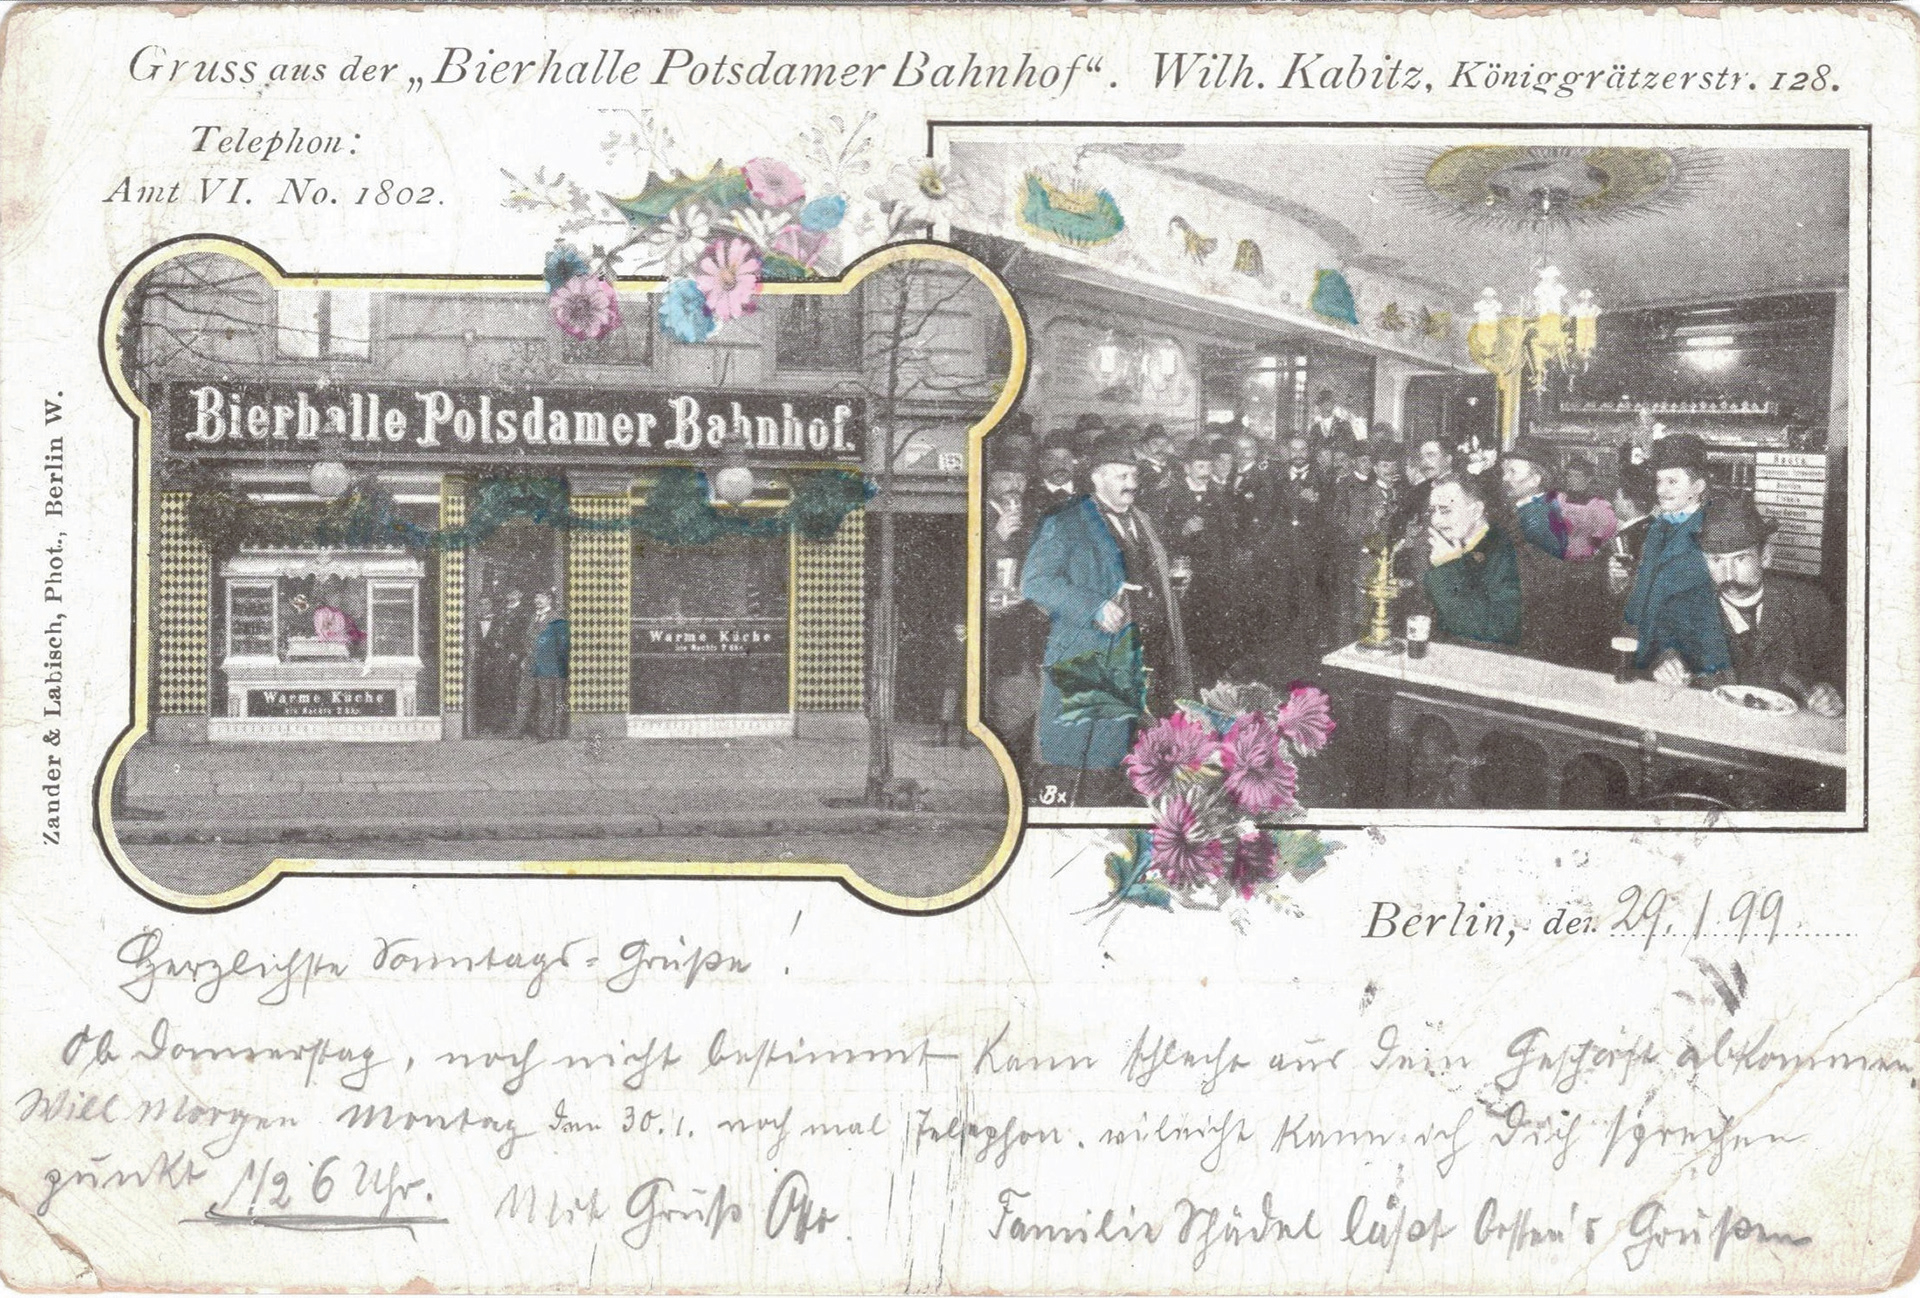 Gruss aus der „Bierhalle Potsdamer Bahnhof“. Wilh. Kabitz, Königgrätzerstr. 128.
Telephon:
Amt VI. No. 1802.
Zander & Labisch, Phot., Berlin W.
Bierhalle Potsdamer Bahnhof.
Warme Küche
bis Nachts 2 Uhr.
Warme Küche
bis Nachts 2 Uhr.
Bx
Berlin, den 29./1 99
Herzlichste Sonntags=Grüße!
Ob Donnerstag, noch nicht bestimmt Kann schlecht aus dem Geschäft abkommen.
Will Morgen Montag den 30.1. noch mal Telephon. vieleicht kann ich Dich sprechen
punkt 1/2 6 Uhr. Mit Gruß Otto.
Familie Schädel läßt besten's Grüßen